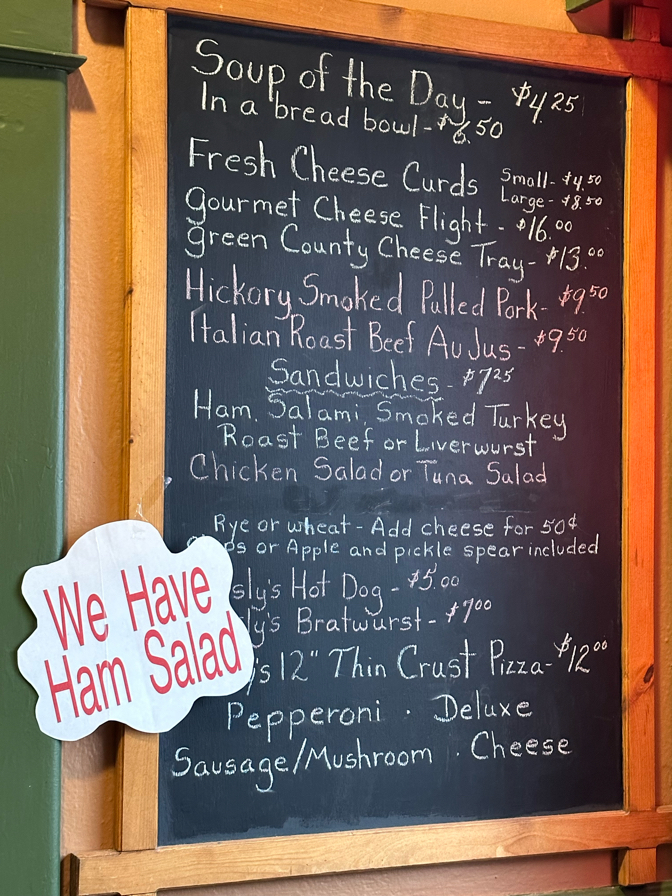 Soup of the Day - $4.25
In a bread bowl - $6.50
Fresh Cheese Curds Small - $4.50
Large - $8.50
Gourmet Cheese Flight - $16.00
Green County Cheese Tray - $13.00
Hickory Smoked Pulled Pork - $9.50
Italian Roast Beef Au Jus - $9.50
Sandwiches - $7.25
Ham. Salami Smoked Turkey
Roast Beef or Liverwurst
Chicken Salad or Tuna Salad
Rye or wheat - Add cheese for 50¢
or Apple and pickle spear included
Hot Dog - $5.00
Bratwurst - $7.00
12" Thin Crust Pizza - $12.00
Pepperoni · Deluxe
Sausage/Mushroom · Cheese
We Have
Ham Salad